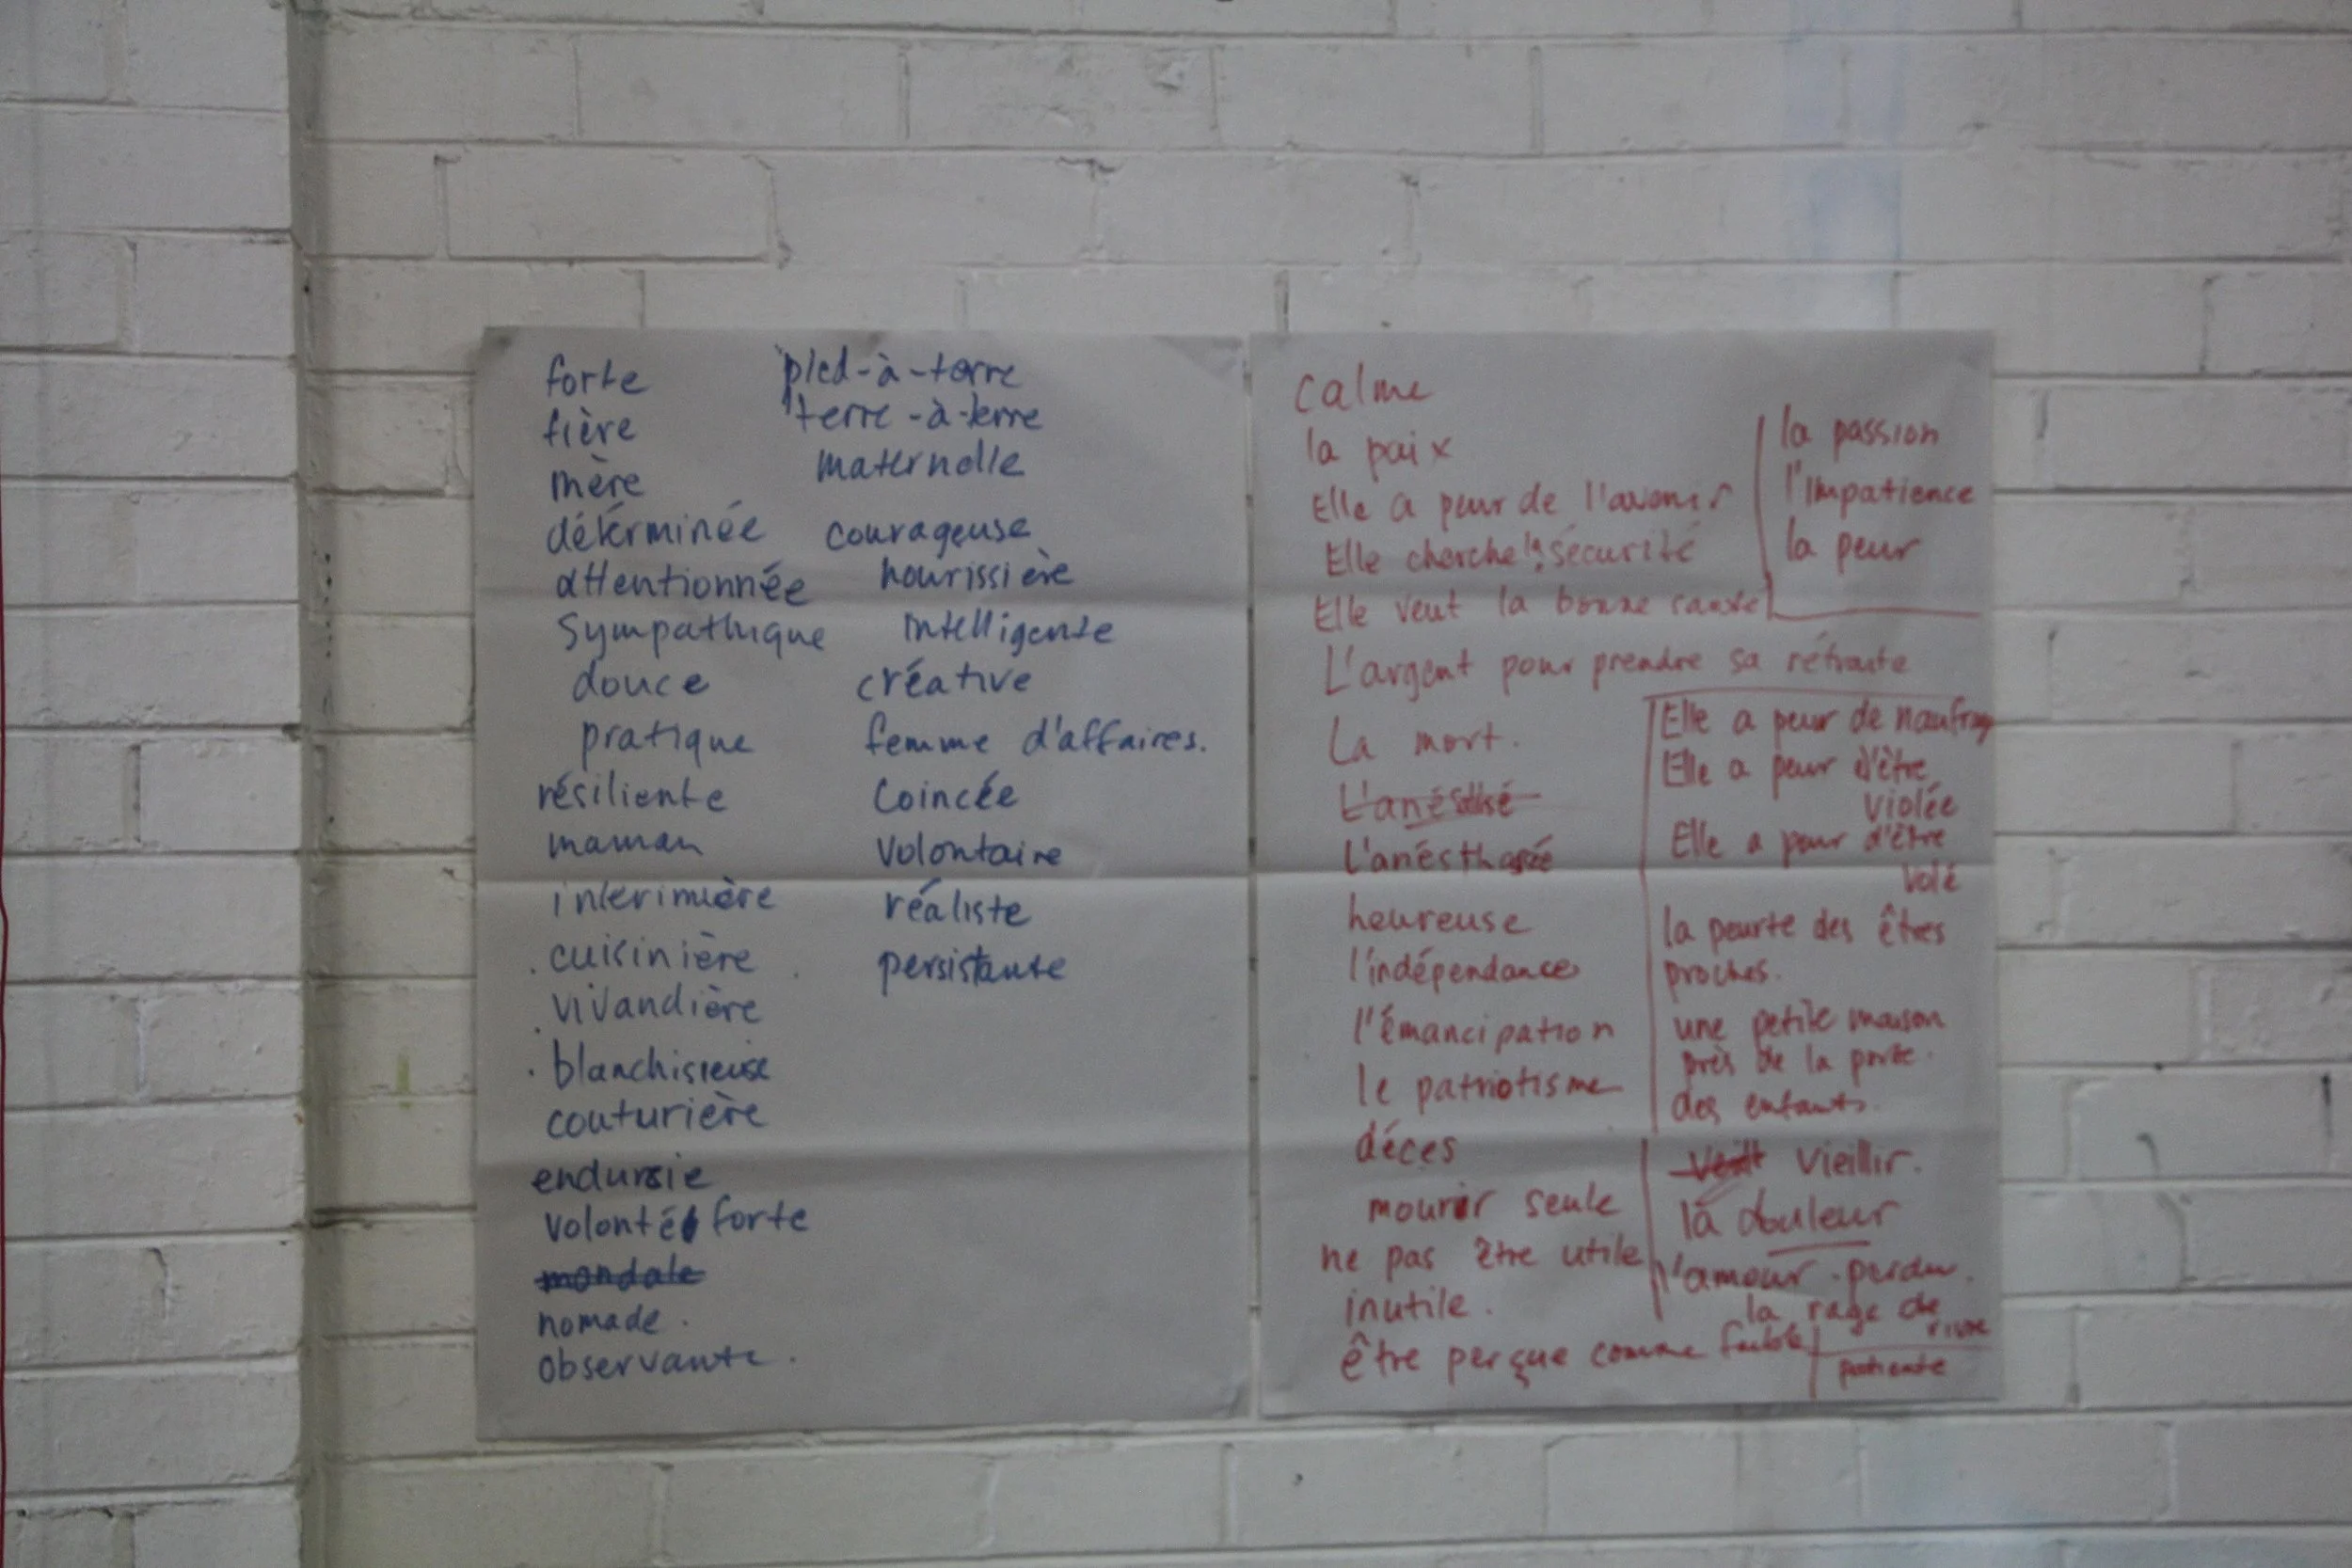 forte
fière
mère
détérminée
attentionnée
Sympathique
douce
pratique
résiliente
maman
interimière
cuisinière
vivandière
blanchisieuse
couturière
endurcie
volonté forte
mondale
nomade.
observante.
pied-à-terre
terre-à-terre
maternelle
courageuse
nourissière
intelligente
créative
femme d'affaires.
Coincée
Volontaire
réaliste
persistante
calme
la paix
Elle a peur de l'avenir
Elle cherche la sécurité
Elle veut la bonne santé
L'argent pour prendre sa retraite
La mort.
heureuse
l'indépendance
l'émancipation
le patriotisme
déces
mourir seule
ne pas être utile
inutile.
être perçue comme faible
la passion
l'impatience
la peur
Elle a peur de naufrage
Elle a peur d'être
violée
Elle a peur d'être
volé
la peurte des êtres
proches.
une petite maison
près de la porte.
des enfants.
vieillir.
la douleur
l'amour perdu.
la rage de
vivre
patiente